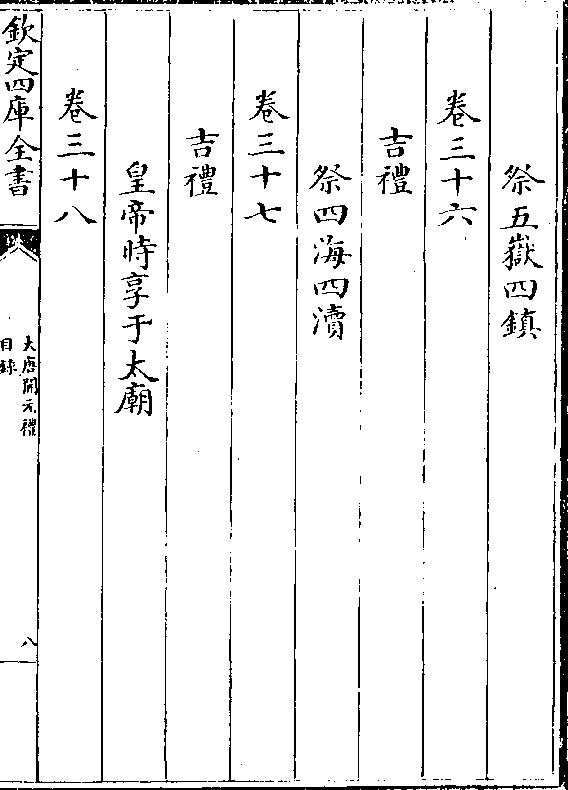 祭五嶽四鎮
卷三十六
吉禮
祭四海四瀆
卷三十七
吉禮
皇帝時享于太廟
卷三十八
欽定四庫全書
大唐開元禮
目録
八